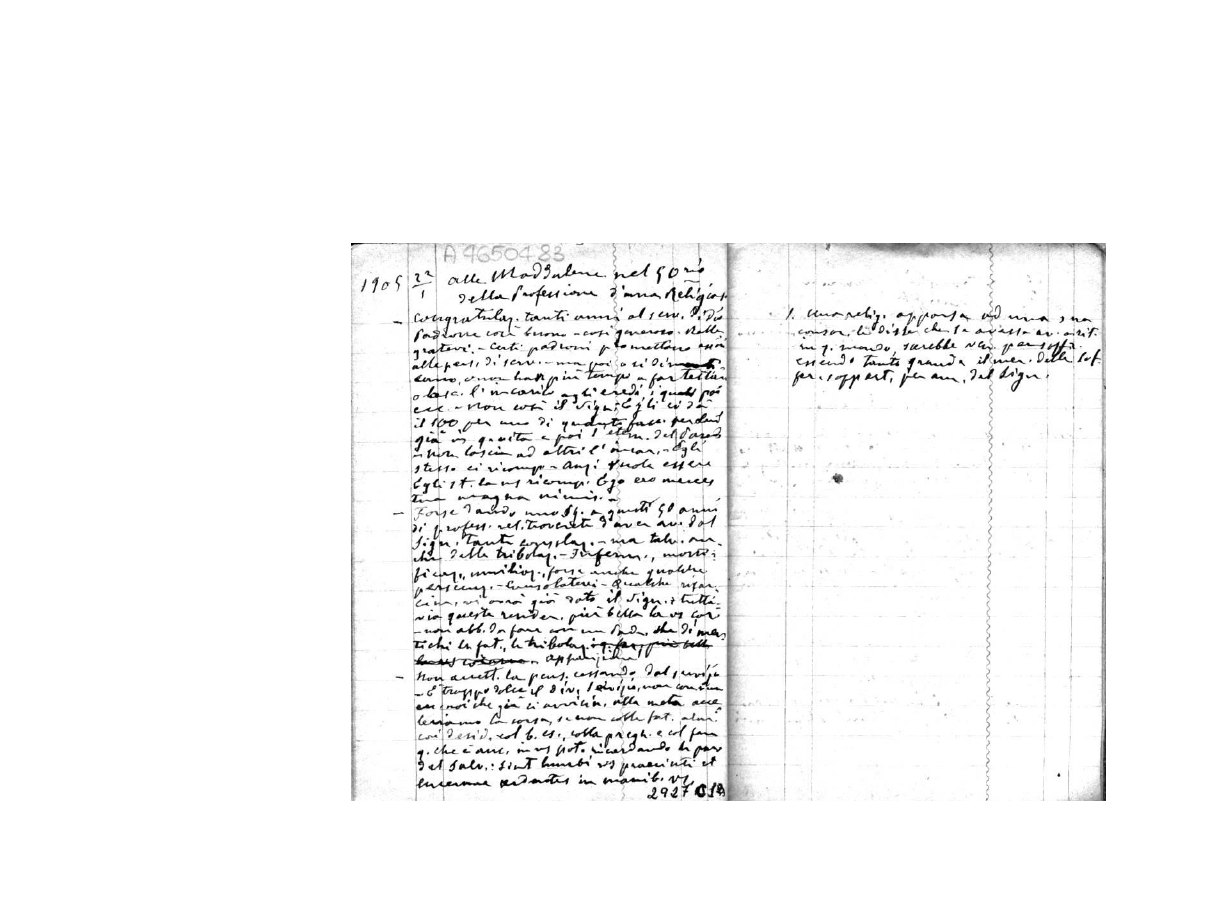 A4650483
1905 22/1 alle Maddalene nel 50mo
della Professione d'una Religiosa
- Congratulaz. tanti anni al serv. di Dio
Padrone così buono - così generoso. Ralle
gratevi. - Certi padroni promettono
alla pens. di serv. - ma poi o si di
o non han più tempo a far
o lasc. l'incarico agli eredi, i quali poi
ecc. - Non così il Sign. Egli ci dà
il 100 per uno di quanto
già in q. vita e poi l'etern. del Parad.
- Non lascia ad altri l'incar. - Egli
stesso ci ricomp. - Anzi vuole essere
Egli st. la ns ricomp. Ego ero merces
tua magna nimis. -
- Forse dando uno sg. a questi 50 anni
di profess. rel. troverete d'aver av. dal
Sign. tante consolaz. - ma talv. an-
che delle tribolaz. - Inferm., morti-
ficaz., umiliaz., forse anche qualche
persecuz. - Consolatevi - Qualche
vi avrà già dato il Sign. : tutta-
via queste renderan. più bella la vs cor
- non abb. da fare con un Padr. che di
tichi le fat., le tribolaz.
- Non accett. la pens. cessando dal servizio
- È troppo dolce il div. servizio, non
noi che già ci avvicin. alla meta acce
leriamo la corsa, se non colle fat. almen
coi desid. col b. es., colla pregh. e col fare
q. che è anc. in ns pot. ricordando le par.
del Salv.: sint lumbi vs praecincti et
lucernae ardentes in manib. vs.
2927
1. Una relig. apparsa ad una sua
consor. le disse che se avesse av. a rit.
in q. mondo, sarebbe per soffr.
essendo tanto grande il mer. delle sof
fer. sopport. per am. del Sign.